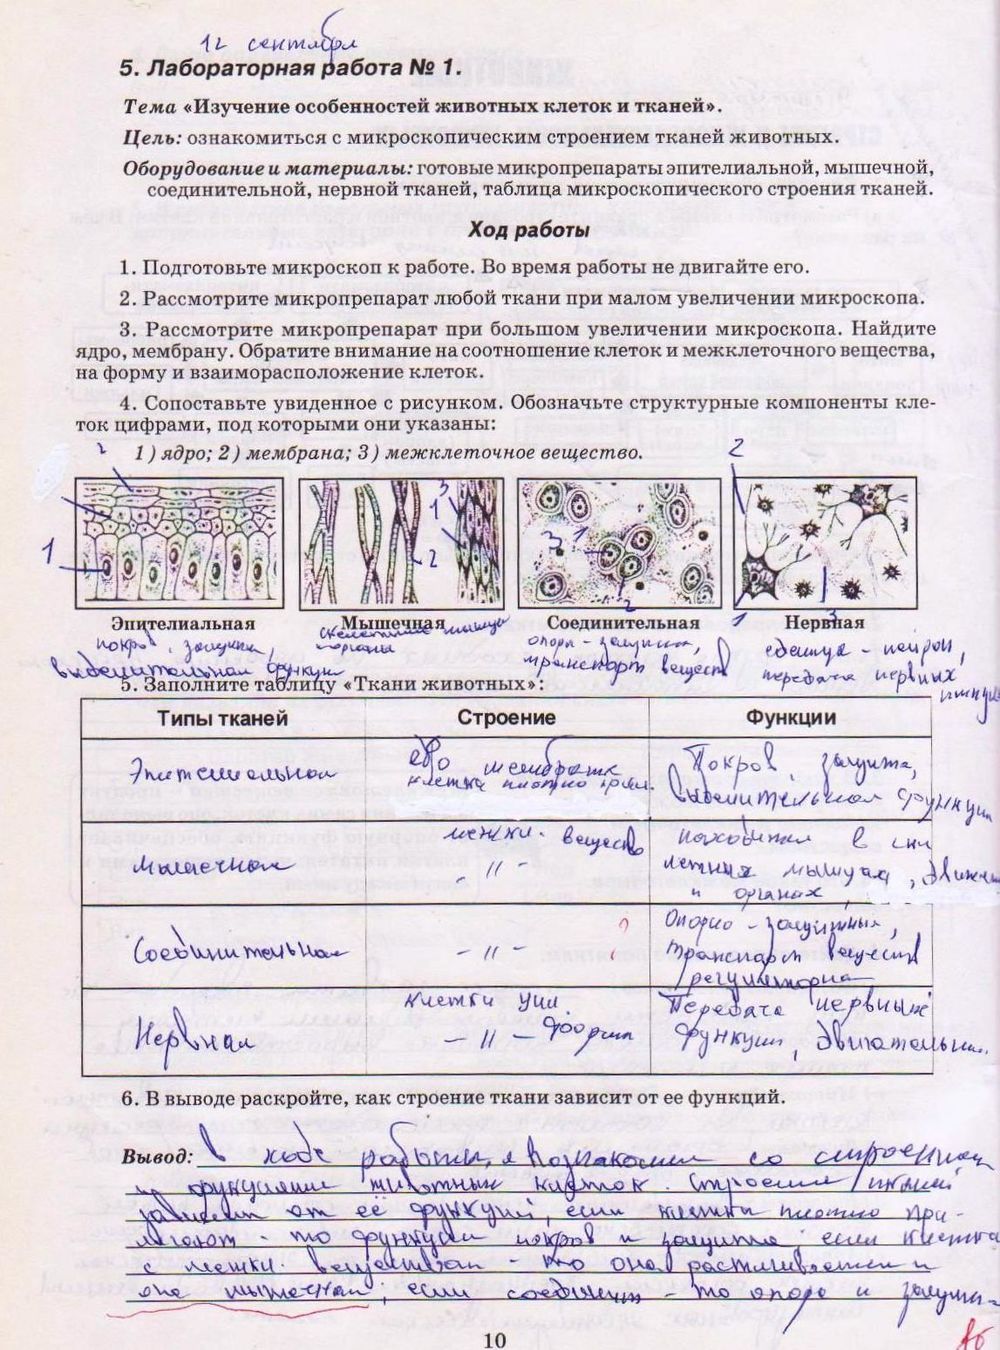 12 сентября
5. Лабораторная работа № 1.
Тема «Изучение особенностей животных клеток и тканей».
Цель: ознакомиться с микроскопическим строением тканей животных.
Оборудование и материалы: готовые микропрепараты эпителиальной, мышечной,
соединительной, нервной тканей, таблица микроскопического строения тканей.
Ход работы
1. Подготовьте микроскоп к работе. Во время работы не двигайте его.
2. Рассмотрите микропрепарат любой ткани при малом увеличении микроскопа.
3. Рассмотрите микропрепарат при большом увеличении микроскопа. Найдите
ядро, мембрану. Обратите внимание на соотношение клеток и межклеточного вещества,
на форму и взаиморасположение клеток.
4. Сопоставьте увиденное с рисунком. Обозначьте структурные компоненты кле-
ток цифрами, под которыми они указаны:
1) ядро; 2) мембрана; 3) межклеточное вещество.
2
1
3
1
2
3
1
2
2
1
3
Эпителиальная Мышечная Соединительная Нервная
покров, защита,
выделительная функции
скелетные мышцы
органы
опора-защитная,
транспорт веществ
единица - нейрон,
передача нервных
5. Заполните таблицу «Ткани животных»:
Типы тканей Строение Функции
Эпителиальная
ядро мембрана
клетки плотно
Покров, защита,
выделительная функции
Мышечная
межкл. вещество
- 11 -
находится в ске
летных мышцах,
и органах
Соединительная
- 11 -
Опорно-защитная,
транспорт веществ
Нервная
клетки
- 11 -
Передача нервных
функции, двигательная
6. В выводе раскройте, как строение ткани зависит от ее функций.
Вывод: в ходе работы, я познакомился со строением
и функциями животных клеток. Строение тканей
зависит от её функций, если клетки плотно при-
легают - то функции покров и защита; если клетка
с межкл. веществом - то она растягивается и
она мышечная; если соединит - то опора и защит-
10